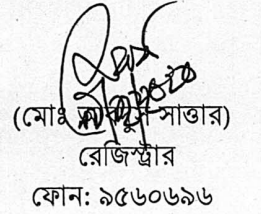 (মোঃ আব্দুস সাত্তার)
রেজিস্ট্রার
ফোন: ৯৫৬০৬৯৬